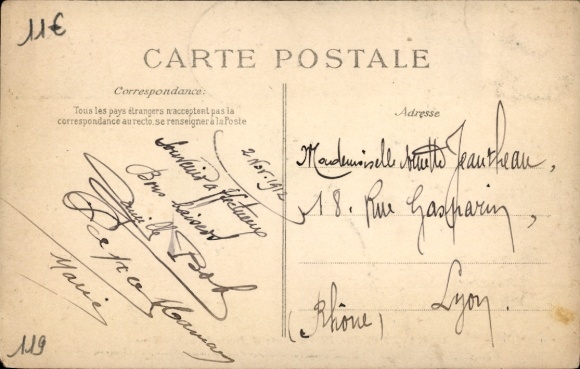 11€
CARTE POSTALE
Correspondance:
Tous les pays étrangers n'acceptent pas la
correspondance au recto, se renseigner à la Poste
Adresse
2 Nov. 1912
Souvenirs affectueux
Bons baisers
Famille Bost
Papa Maman
Marie
Mademoiselle Ninette Jeantheau,
18. Rue Gasparin,
Lyon.
(Rhône)
119